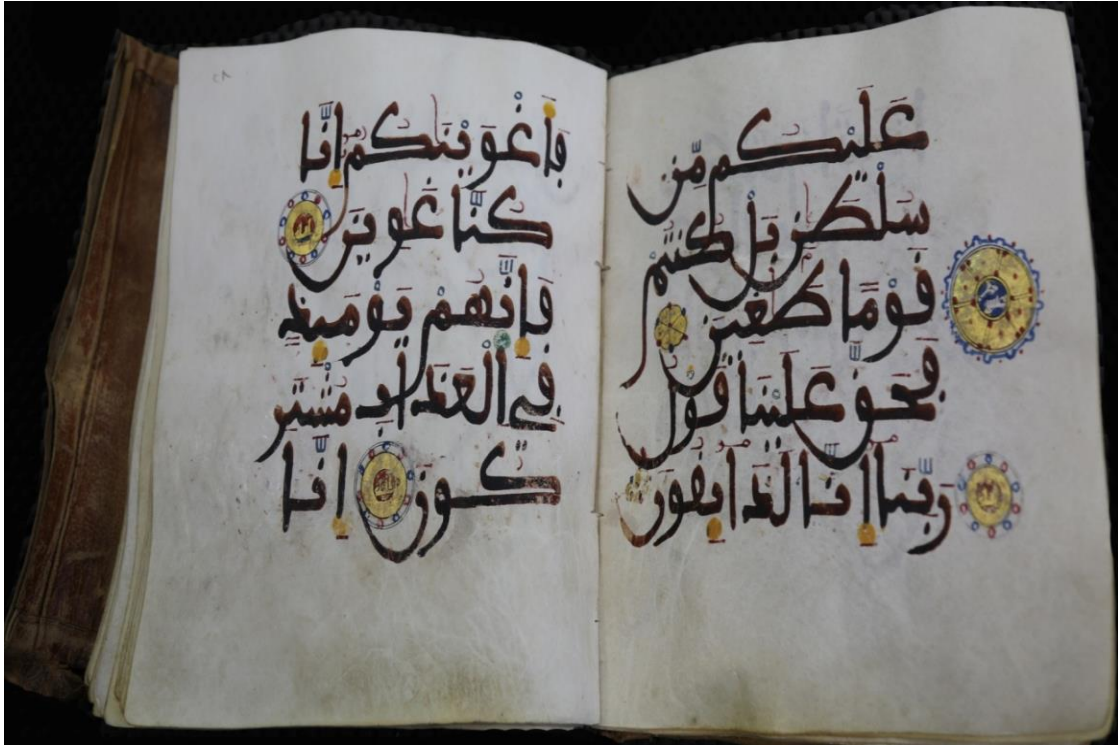 عَلَيْكُم مِّن
سُلْطَٰنٍ بَلْ كُنتُمْ
قَوْمًا طَٰغِينَ
فَحَقَّ عَلَيْنَا قَوْلُ
رَبِّنَا إِنَّا لَذَآئِقُونَ
فَأَغْوَيْنَٰكُمْ إِنَّا
كُنَّا غَٰوِينَ
فَإِنَّهُمْ يَوْمَئِذٍ
فِي الْعَذَابِ مُشْتَرِ
كُونَ إِنَّا